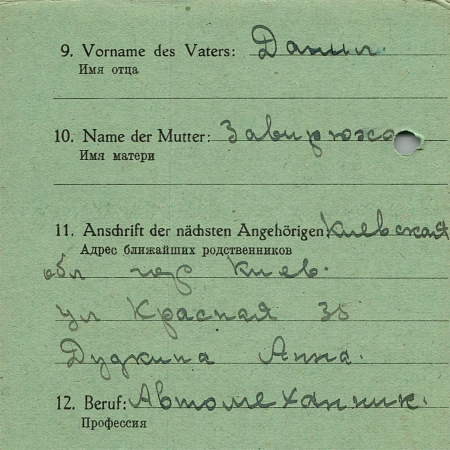 9. Vorname des Vaters: Данил.
Имя отца
10. Name der Mutter: Завирюха
Имя матери
11. Anschrift der nächsten Angehörigen: Киевская
Адрес ближайших родственников
обл гор Киев.
ул Красная 35
Дудкина Анна.
12. Beruf: Автомеханник.
Профессия